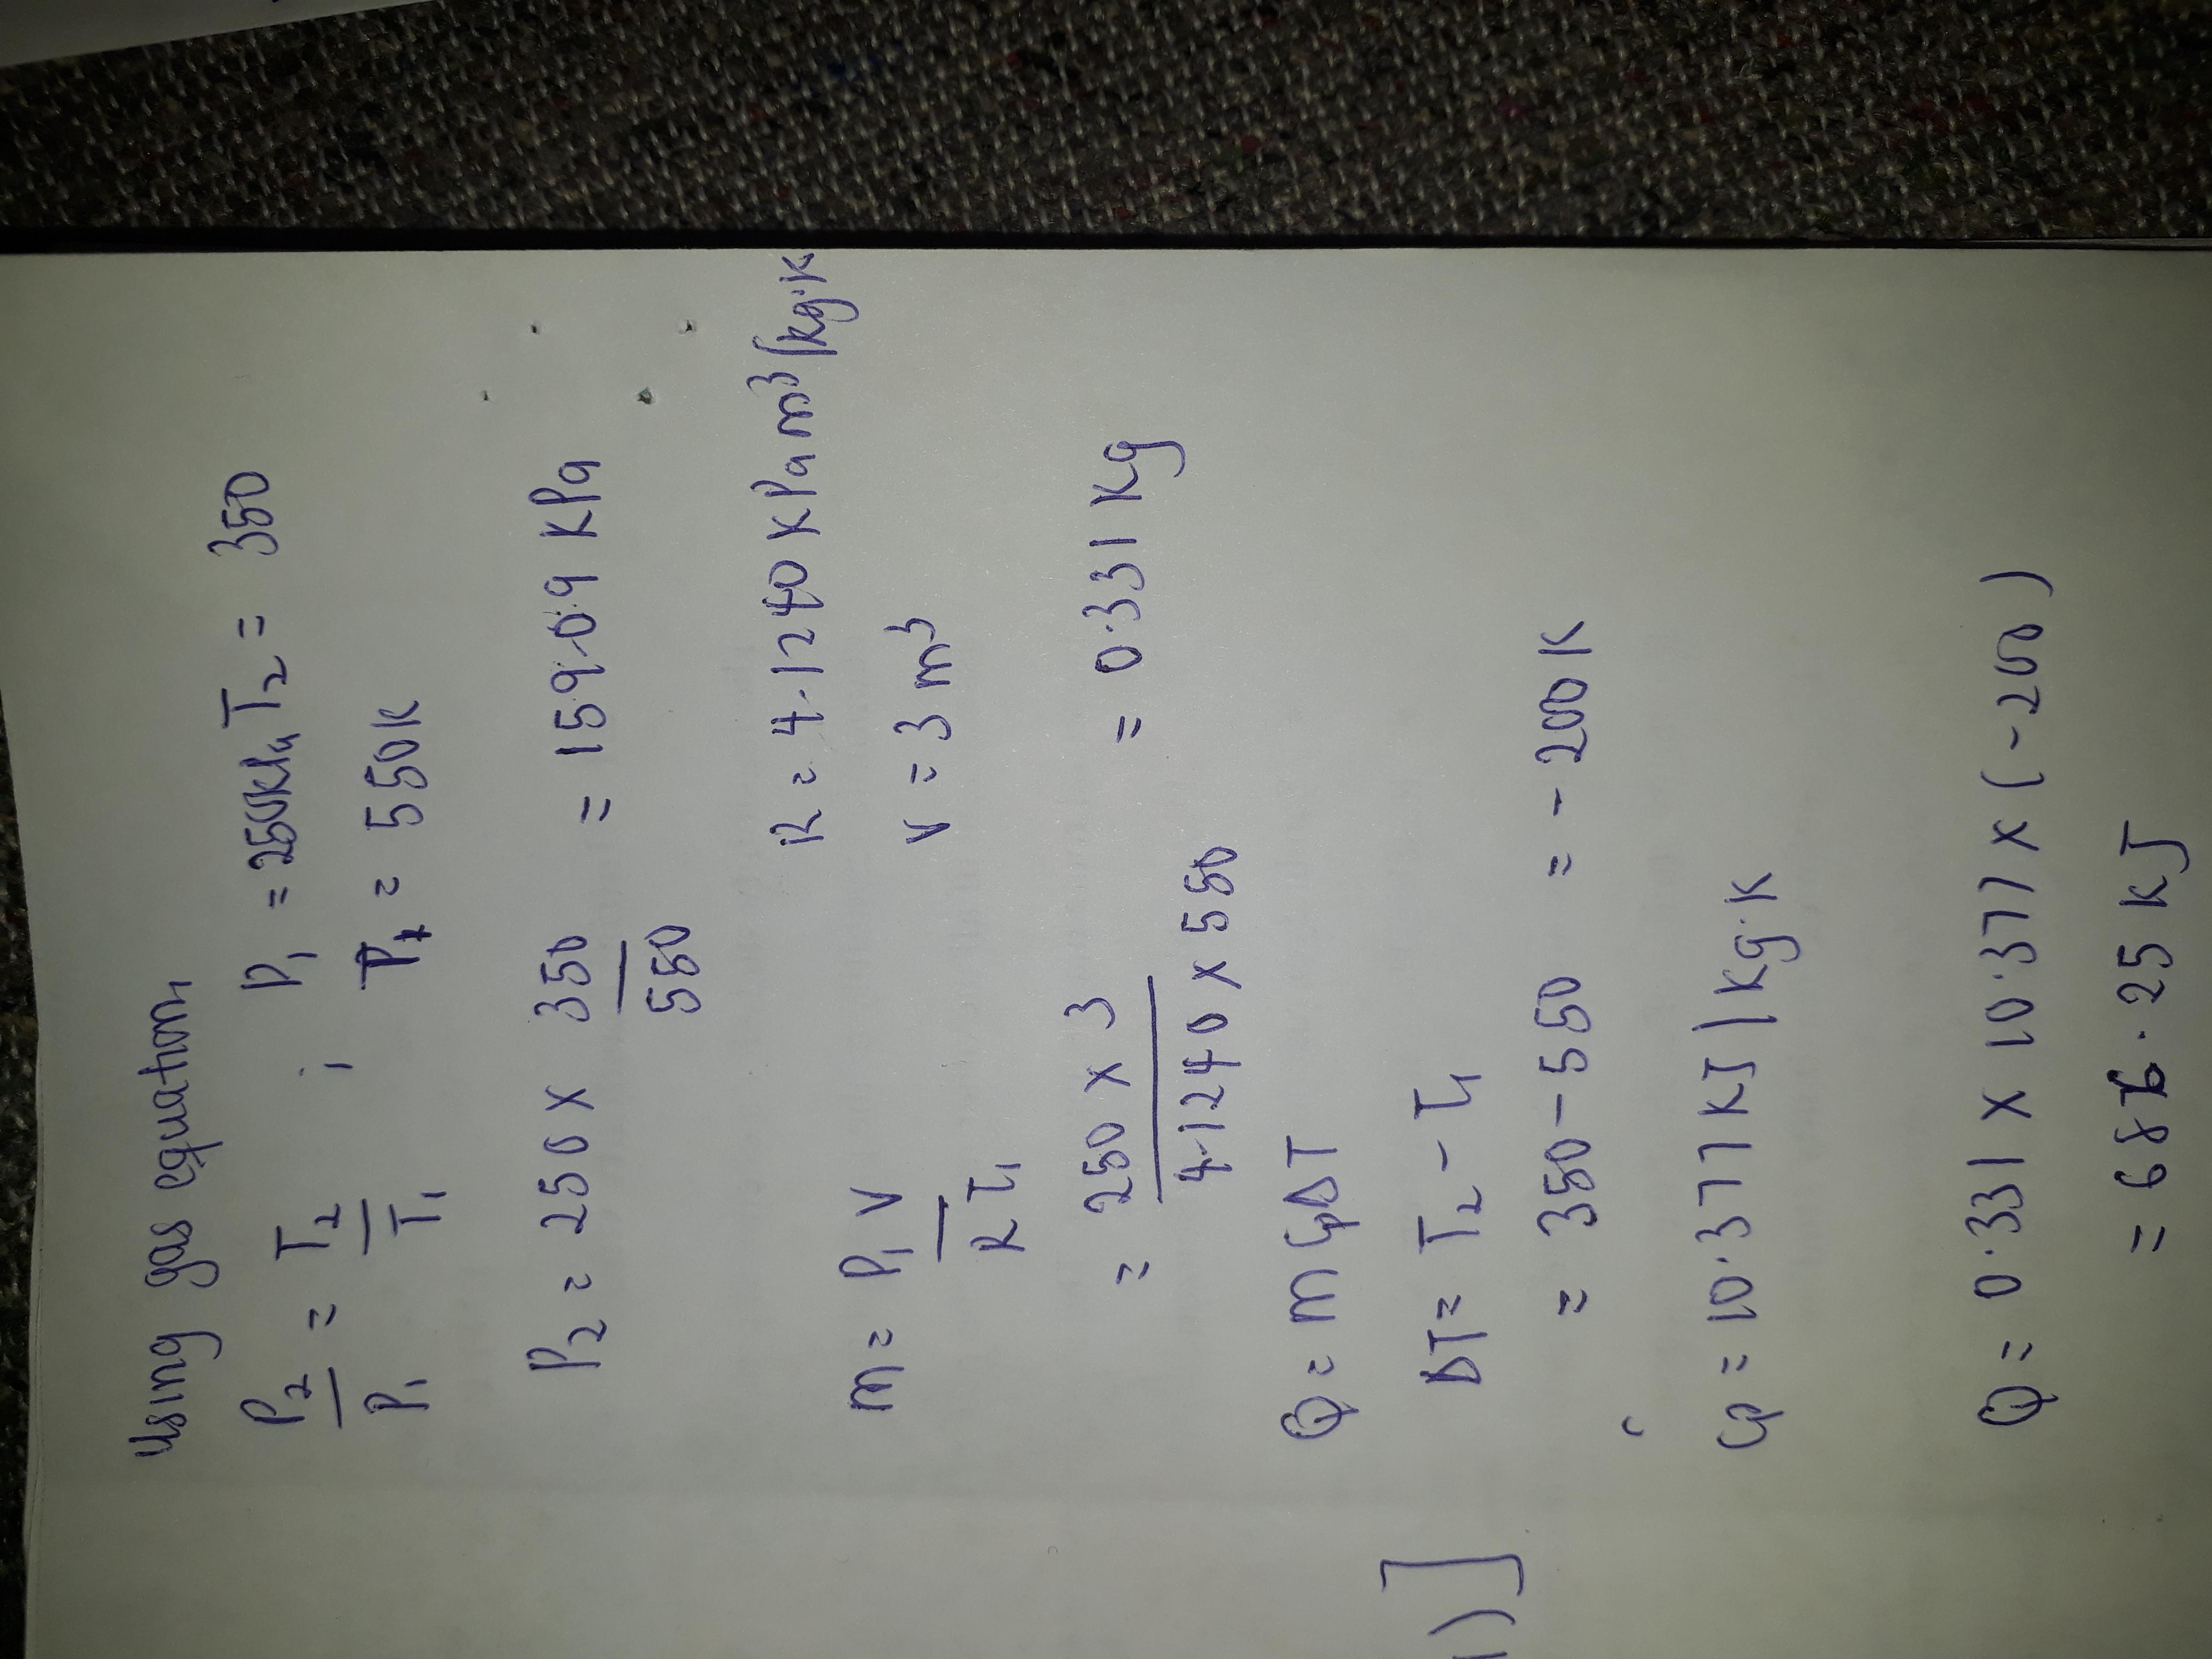 Using gas equation
P₂/P₁ = T₂/T₁ ; P₁ = 250kPa T₂ = 350
T₁ = 550K
P₂ = 250 x 350/550 = 159.09 KPa
m = P₁V/RT₁ R = 4.1240 KPa m³/kg.K
V = 3 m³
= 250 x 3/4.1240 x 550 = 0.331 Kg
Q = m Cp ΔT
ΔT = T₂ - T₁
= 350 - 550 = -200K
Cp = 10.377 KJ/kg.K
Q = 0.331 x 10.377 x (-200)
= 686.25 KJ
)]